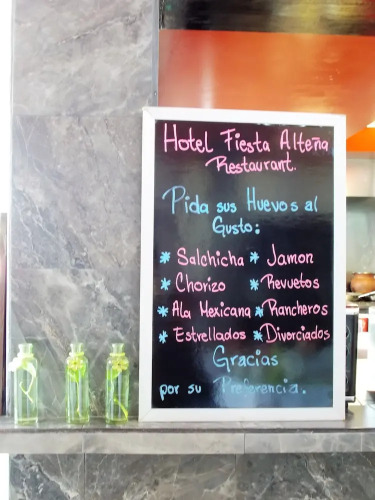 Hotel Fiesta Alteña
Restaurant.
Pida sus Huevos al
Gusto:
* Salchicha * Jamon
* Chorizo * Revuetos
* Ala Mexicana * Rancheros
* Estrellados * Divorciados
Gracias
por su Preferencia.